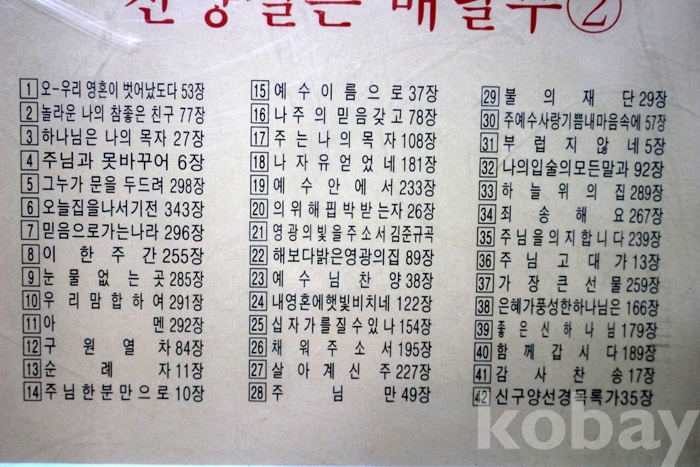 찬송실은 배달부②
1 오-우리 영혼이 벗어났도다 53장
2 놀라운 나의 참좋은 친구 77장
3 하나님은 나의 목자 27장
4 주님과 못바꾸어 6장
5 그누가 문을 두드려 298장
6 오늘집을나서기전 343장
7 믿음으로가는나라 296장
8 이 한 주 간 255장
9 눈 물 없 는 곳 285장
10 우 리 맘 합 하 여 291장
11 아 멘 292장
12 구 원 열 차 84장
13 순 례 자 11장
14 주 님 한 분 만 으 로 10장
15 예 수 이 름 으 로 37장
16 나 주 의 믿 음 갖 고 78장
17 주 는 나 의 목 자 108장
18 나 자 유 얻 었 네 181장
19 예 수 안 에 서 233장
20 의 위 해 핍 박 받 는 자 26장
21 영 광 의 빛 을 주 소 서 김준규곡
22 해보다밝은영광의집 89장
23 예 수 님 찬 양 38장
24 내영혼에햇빛비치네 122장
25 십 자 가 를 질 수 있 나 154장
26 채 워 주 소 서 195장
27 살 아 계 신 주 227장
28 주 님 만 49장
29 불 의 재 단 29장
30 주예수사랑기쁨내마음속에 57장
31 부 럽 지 않 네 5장
32 나의입술의모든말과 92장
33 하 늘 위 의 집 289장
34 죄 송 해 요 267장
35 주 님 을 의 지 합 니 다 239장
36 주 님 고 대 가 13장
37 가 장 큰 선 물 259장
38 은혜가풍성한하나님은 166장
39 좋 은 신 하 나 님 179장
40 함 께 갑 시 다 189장
41 감 사 찬 송 17장
42 신구약선경목록가35장
kobay